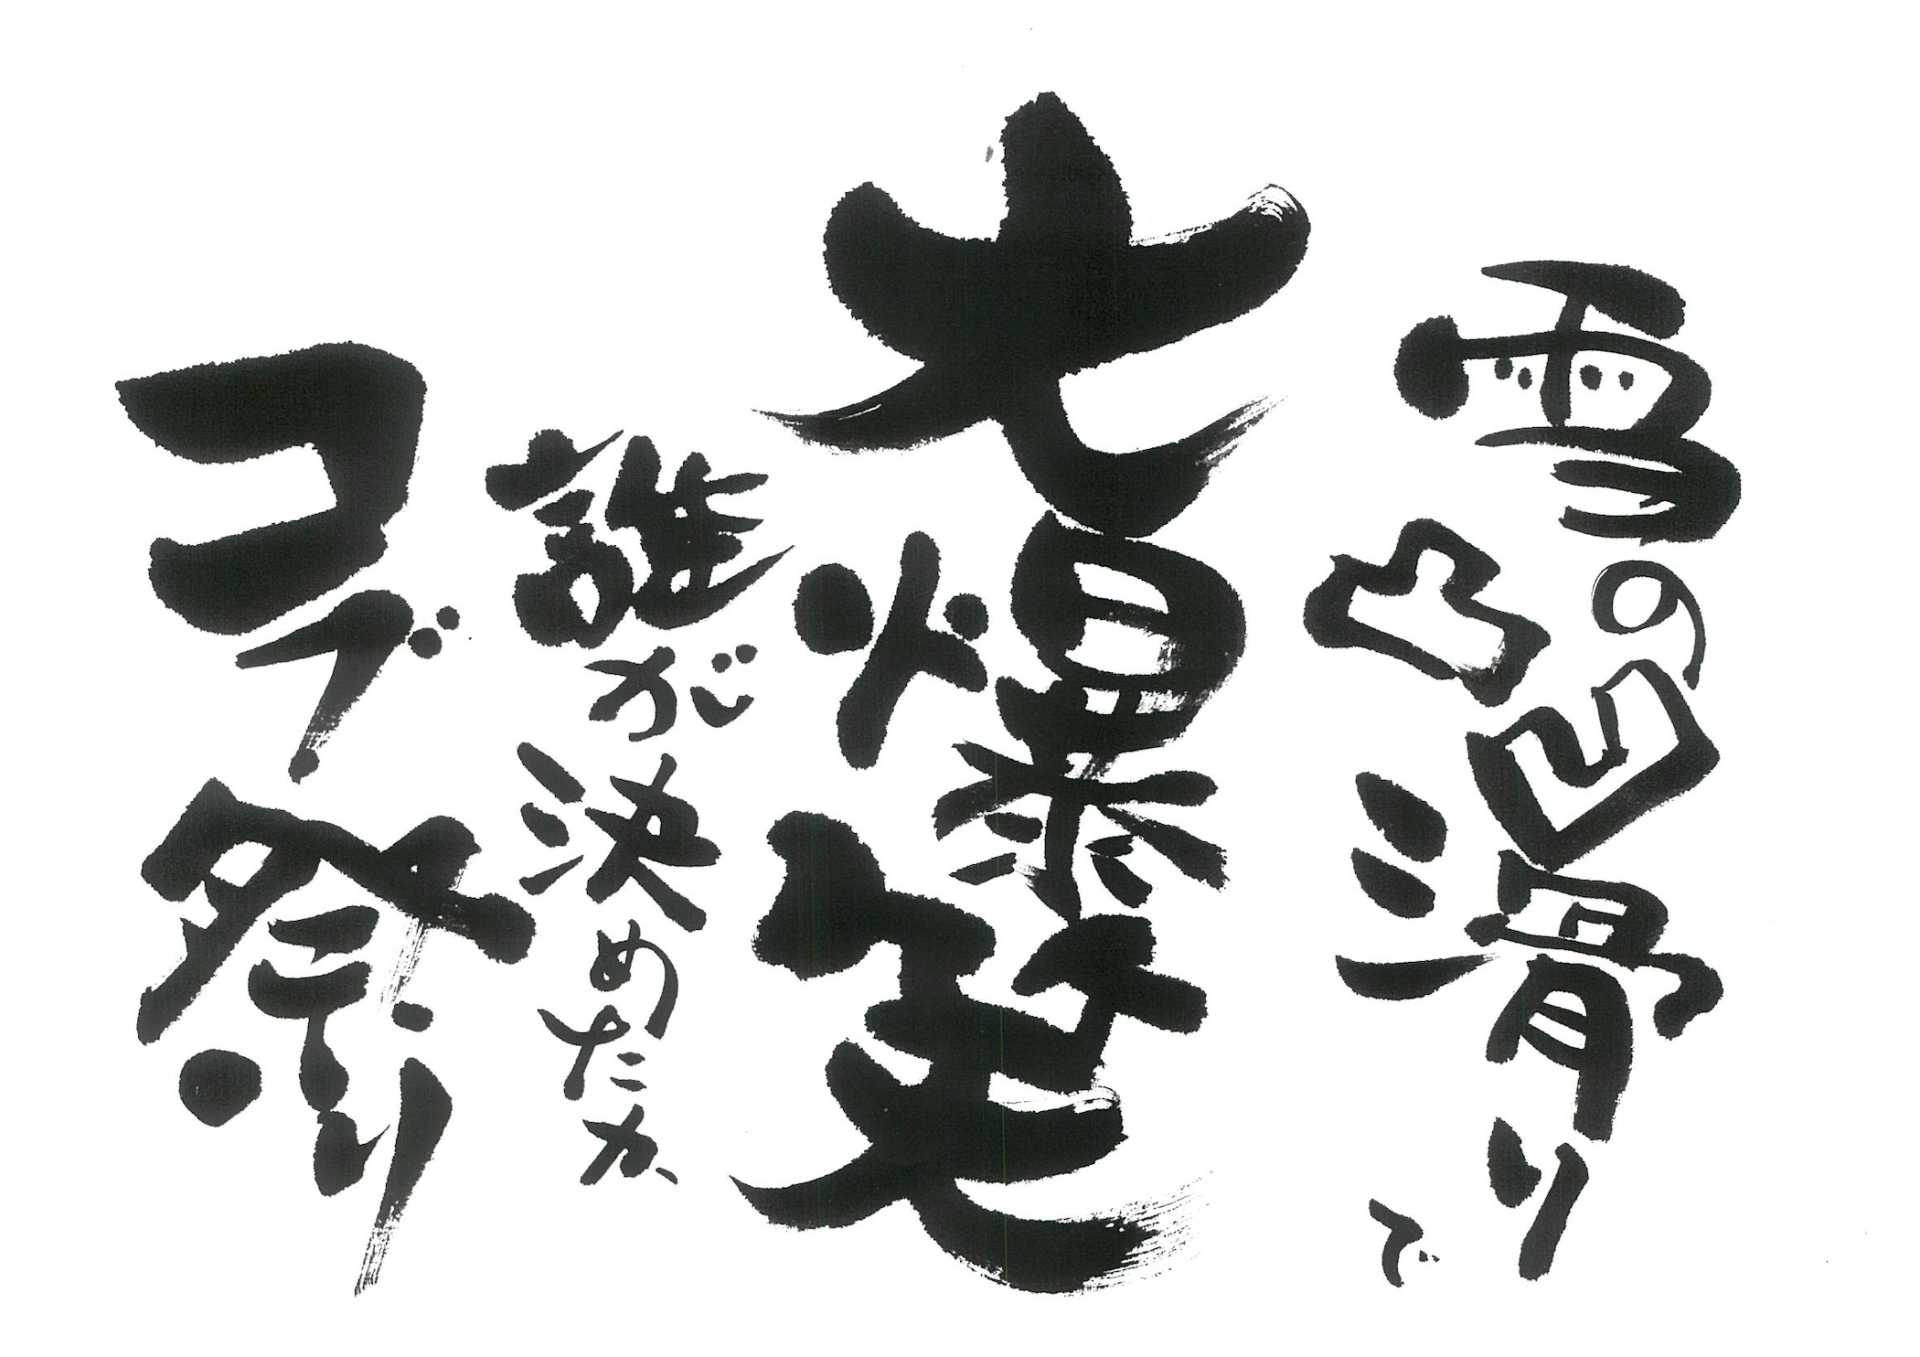 雪の凸凹滑りで
大爆笑
誰が決めたか
コブ祭り